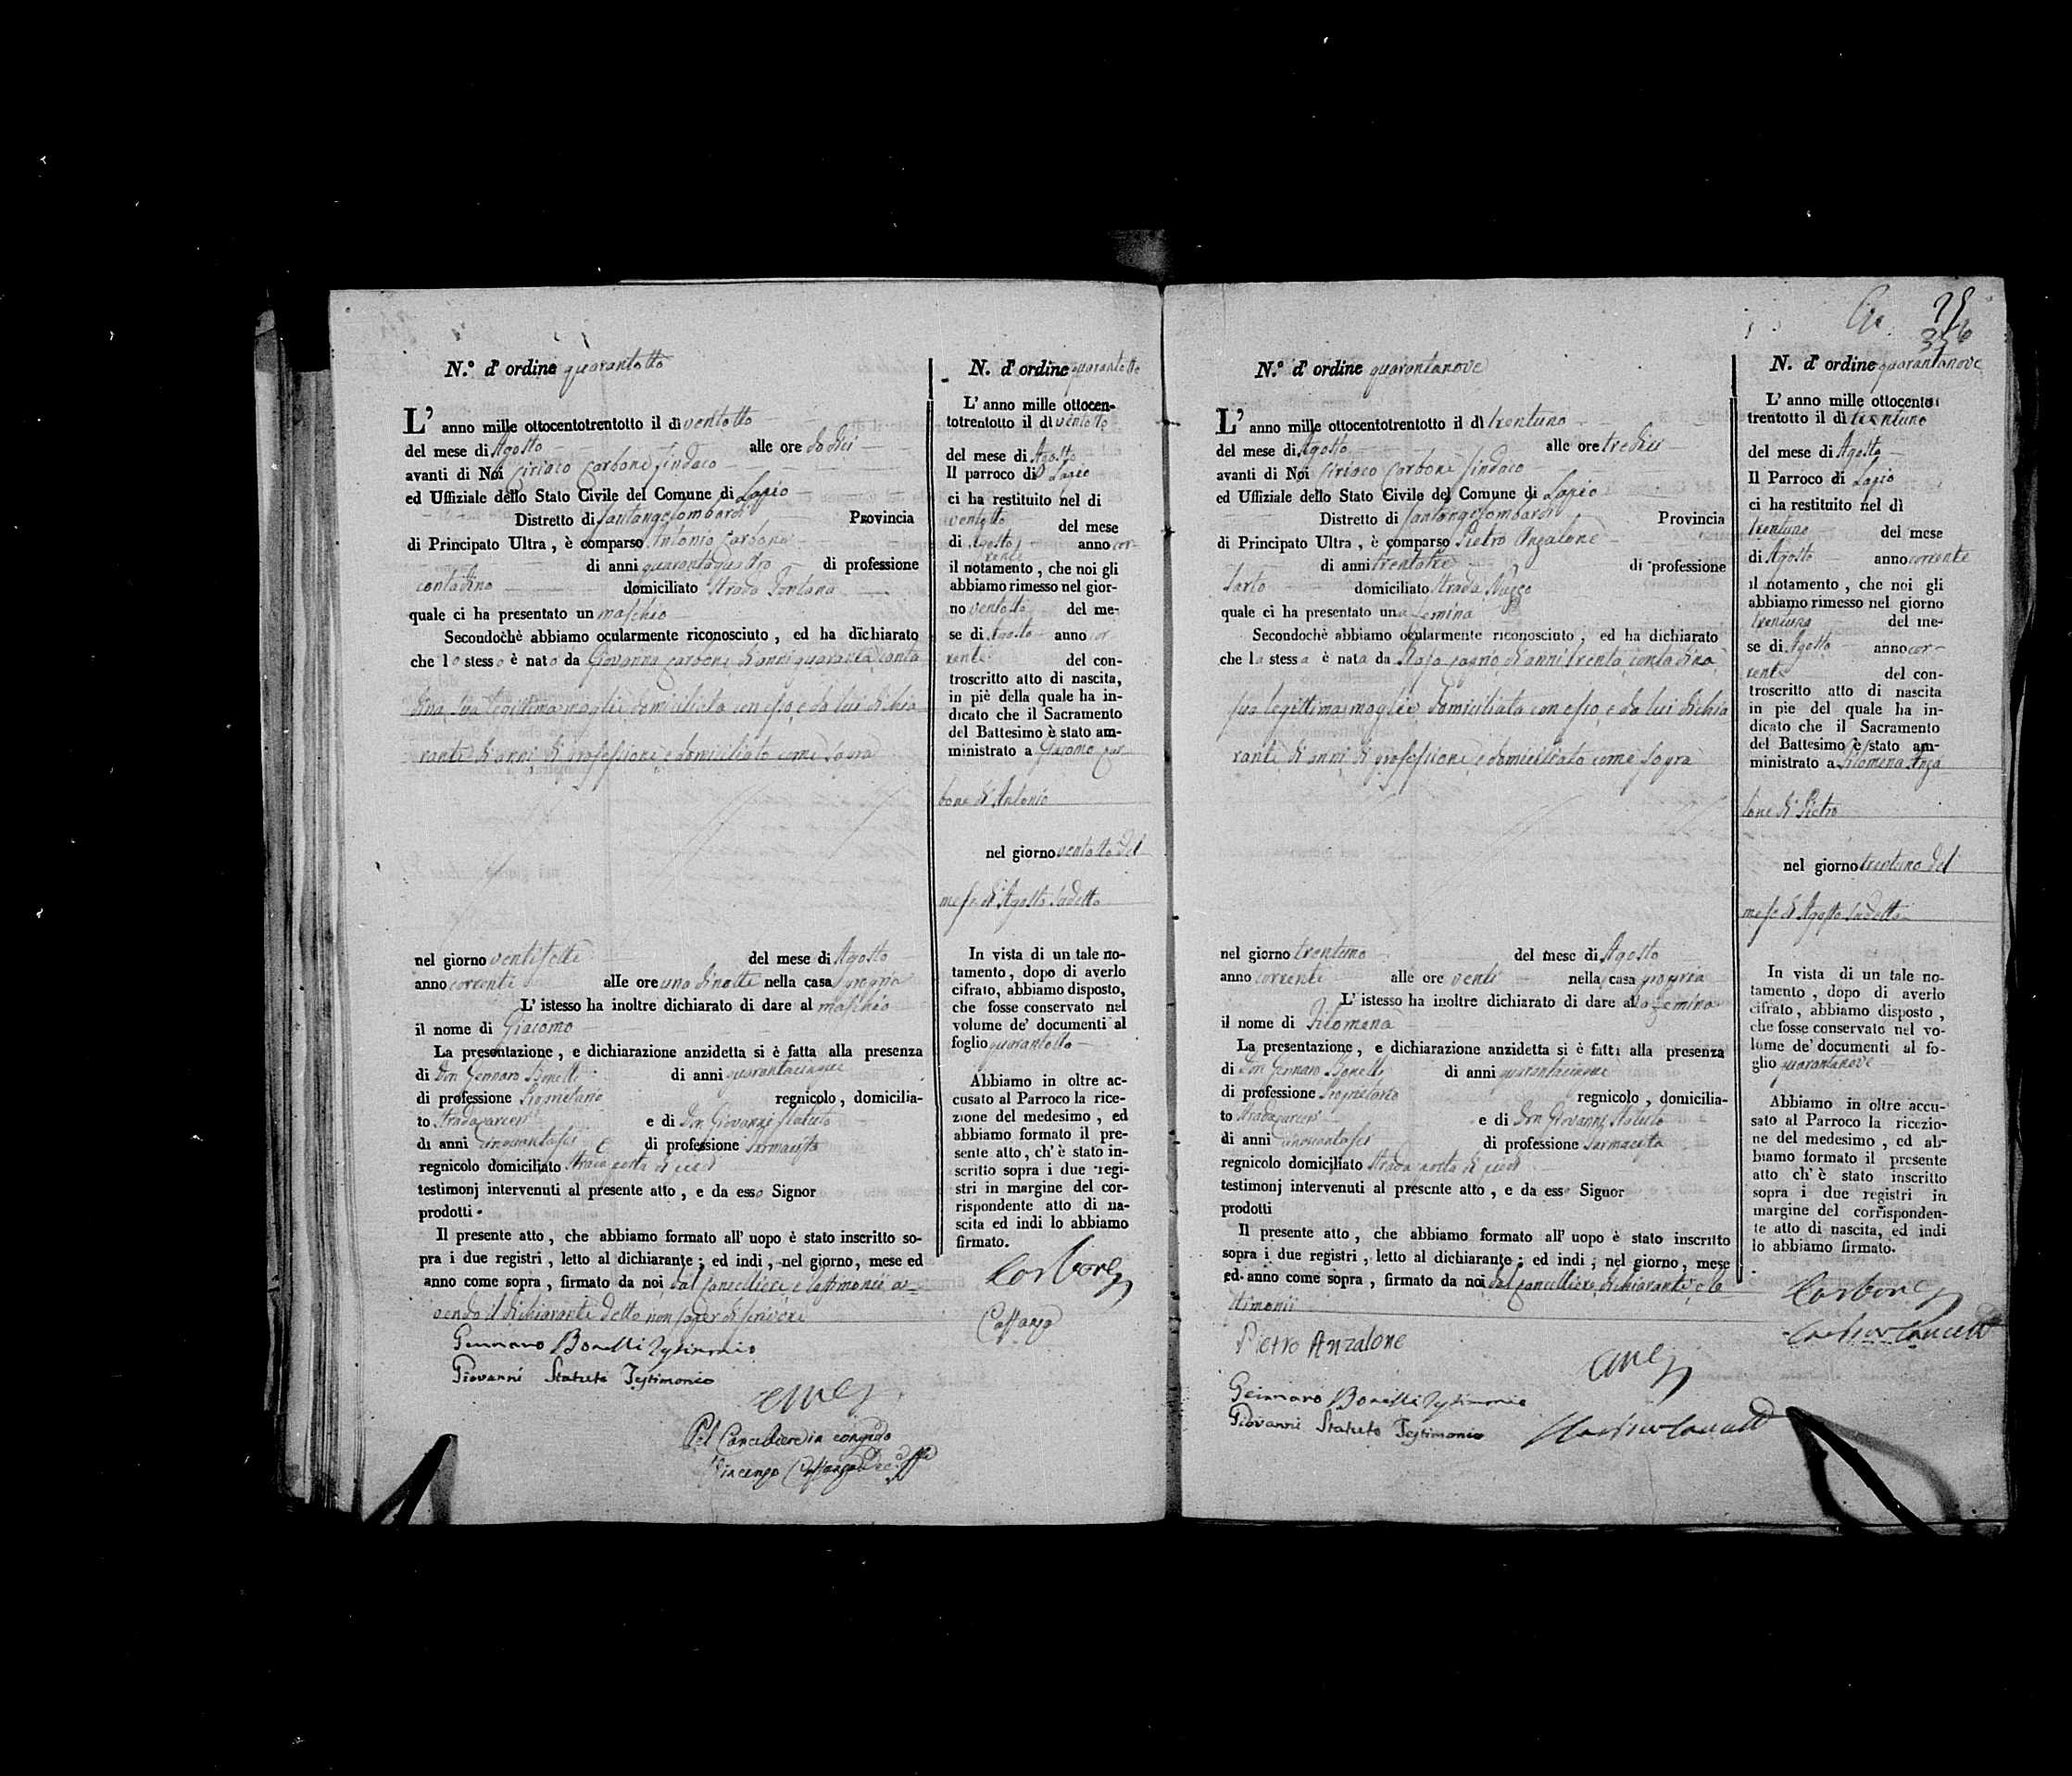 N.º d' ordine quarantotto
L' anno mille ottocentotrentotto il di ventotto
del mese di Agosto alle ore dodici
avanti di Noi Ciriaco Carbone Sindaco
ed Uffiziale dello Stato Civile del Comune di Lapio
Distretto di Santangelombardi Provincia
di Principato Ultra, è comparso Antonio Carbone
di anni quarantaquattro di professione
contadino domiciliato Strada Fontana
quale ci ha presentato un maschio
Secondochè abbiamo ocularmente riconosciuto, ed ha dichiarato
che lo stesso è nato da Giovanna Carbone di anni quaranta conta
dina sua legittima moglie domiciliata con esso, e da lui dichia
rante di anni di professione e domiciliato come sopra
nel giorno ventisette del mese di Agosto
anno corrente alle ore una di notte nella casa propria
L' istesso ha inoltre dichiarato di dare al maschio
il nome di Giacomo
La presentazione, e dichiarazione anzidetta si è fatta alla presenza
di Don Gennaro Bonelli di anni quarantacinque
di professione Proprietario regnicolo, domicilia-
to Strada e di Don Giovanni Statuto
di anni cinquantasei di professione Farmacista
regnicolo domiciliato Strada porta di
testimonj intervenuti al presente atto, e da esso Signor
prodotti.
Il presente atto, che abbiamo formato all' uopo è stato inscritto so-
pra i due registri, letto al dichiarante; ed indi, nel giorno, mese ed
anno come sopra, firmato da noi dal Cancelliere, e testimonii a-
vendo il dichiarante detto non saper di scrivere
Gennaro Bonelli Testimonio
Giovanni Statuto Testimonio
Pel Cancelliere in congedo
Vincenzo
N. d' ordine quarantotto
L' anno mille ottocen-
totrentotto il di ventotto
del mese di Agosto
Il parroco di Lapio
ci ha restituito nel di
ventotto del mese
di Agosto anno cor-
rente
il notamento, che noi gli
abbiamo rimesso nel gior-
no ventotto del me-
se di Agosto anno cor
rente del con-
troscritto atto di nascita,
in piè della quale ha in-
dicato che il Sacramento
del Battesimo è stato am-
ministrato a Giacomo Car
bone di Antonio
nel giorno ventotto del
mese di Agosto sudetto
In vista di un tale no-
tamento, dopo di averlo
cifrato, abbiamo disposto,
che fosse conservato nel
volume de' documenti al
foglio quarantotto
Abbiamo in oltre ac-
cusato al Parroco la rice-
zione del medesimo, ed
abbiamo formato il pre-
sente atto, ch' è stato in-
scritto sopra i due regi-
stri in margine del cor-
rispondente atto di na-
scita ed indi lo abbiamo
firmato.
Carbone
25
356
N.º d' ordine quarantanove
L' anno mille ottocentotrentotto il dì trentuno
del mese di Agosto alle ore tredici
avanti di Noi Ciriaco Carbone Sindaco
ed Uffiziale dello Stato Civile del Comune di Lapio
Distretto di Santangelombardi Provincia
di Principato Ultra, è comparso Pietro Anzalone
di anni trentatre di professione
Sarto domiciliato Strada
quale ci ha presentato una femina
Secondochè abbiamo ocularmente riconosciuto, ed ha dichiarato
che la stessa è nata da Rosa di anni trenta contadina
sua legittima moglie domiciliata con esso, e da lui dichia
rante di anni di professione e domiciliato come sopra
nel giorno trentuno del mese di Agosto
anno corrente alle ore venti nella casa propria
L' istesso ha inoltre dichiarato di dare alla femina
il nome di Filomena
La presentazione, e dichiarazione anzidetta si è fatta alla presenza
di Don Gennaro Bonelli di anni quarantacinque
di professione Proprietario regnicolo, domicilia-
to Strada e di Don Giovanni Statuto
di anni cinquantasei di professione Farmacista
regnicolo domiciliato Strada porta di
testimonj intervenuti al presente atto, e da esso Signor
prodotti
Il presente atto, che abbiamo formato all' uopo è stato inscritto
sopra i due registri, letto al dichiarante; ed indi; nel giorno, mese
ed anno come sopra, firmato da noi dal Cancelliere, dichiarante, e te
stimonii
Pietro Anzalone
Gennaro Bonelli Testimonio
Giovanni Statuto Testimonio
N. d' ordine quarantanove
L' anno mille ottocento
trentotto il dì trentuno
del mese di Agosto
Il Parroco di Lapio
ci ha restituito nel dì
trentuno del mese
di Agosto anno corrente
il notamento, che noi gli
abbiamo rimesso nel giorno
trentuno del me-
se di Agosto anno cor-
rente del con-
troscritto atto di nascita
in pie del quale ha in-
dicato che il Sacramento
del Battesimo è stato am-
ministrato a Filomena Anza
lone di Pietro
nel giorno trentuno del
mese di Agosto sudetto
In vista di un tale no-
tamento, dopo di averlo
cifrato, abbiamo disposto,
che fosse conservato nel vo-
lume de' documenti al fo-
glio quarantanove
Abbiamo in oltre accu-
sato al Parroco la ricezio-
ne del medesimo, ed ab-
biamo formato il presente
atto ch' è stato inscritto
sopra i due registri in
margine del corrisponden-
te atto di nascita, ed indi
lo abbiamo firmato.
Carbone